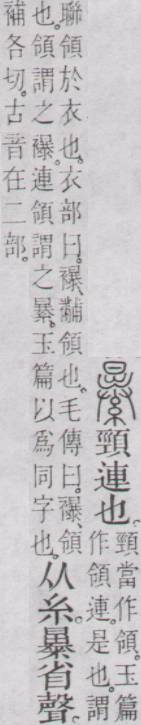 頸連也。
頸當作領。玉篇
作領連。是也。謂
聯領於衣也。衣部曰。襮、黼領也。毛傳曰。襮、領
也。領謂之襮。連領謂之。玉篇以爲同字也。
从糸。暴省聲。
補各切。古音在二部。